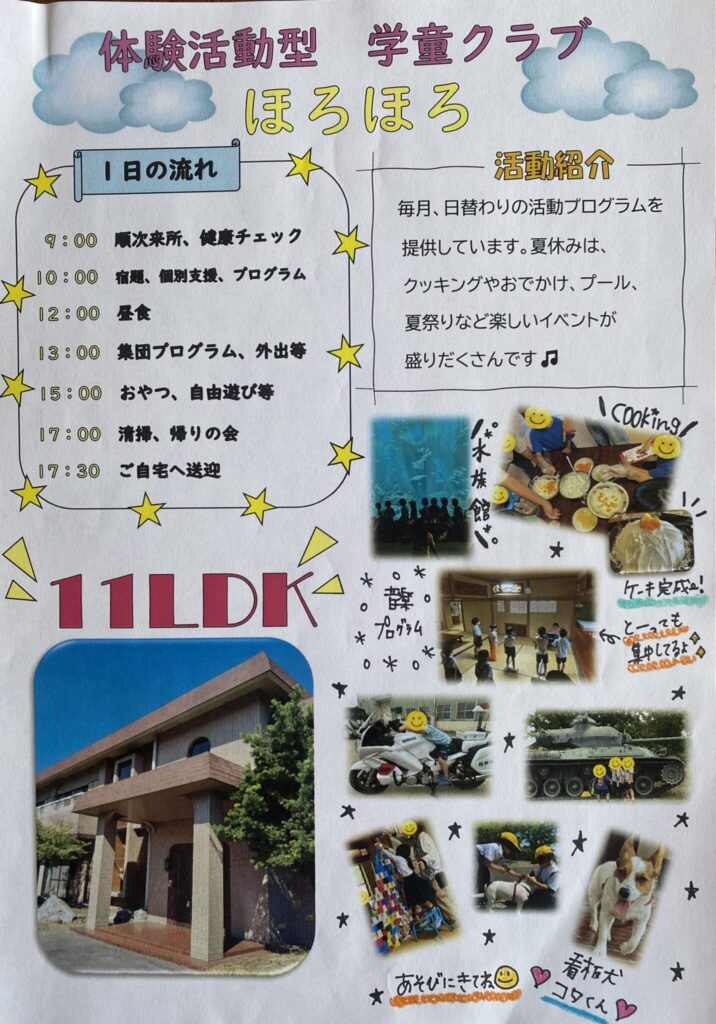 体験活動型　学童クラブ
ほろほろ
1日の流れ
9：00 順次来所、健康チェック
10：00 宿題、個別支援、プログラム
12：00 昼食
13：00 集団プログラム、外出等
15：00 おやつ、自由遊び等
17：00 清掃、帰りの会
17：30 ご自宅へ送迎
活動紹介
毎月、日替わりの活動プログラムを
提供しています。夏休みは、
クッキングやおでかけ、プール、
夏祭りなど楽しいイベントが
盛りだくさんです♫
水族館
cooking
ケーキ完成!
音楽
プログラム
とーっても
集中してるよ
11LDK
あそびにきてね
看板犬
コタくん